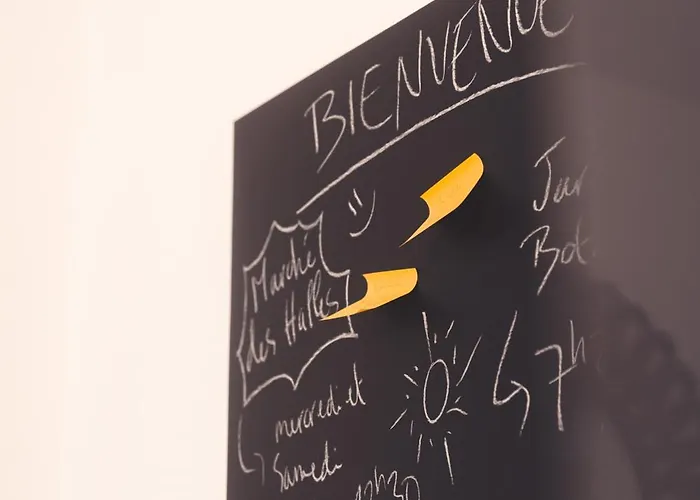 BIENVENUE
Marché
des Halles
mercredi et
Samedi
12h30
Jar
Bot
7h